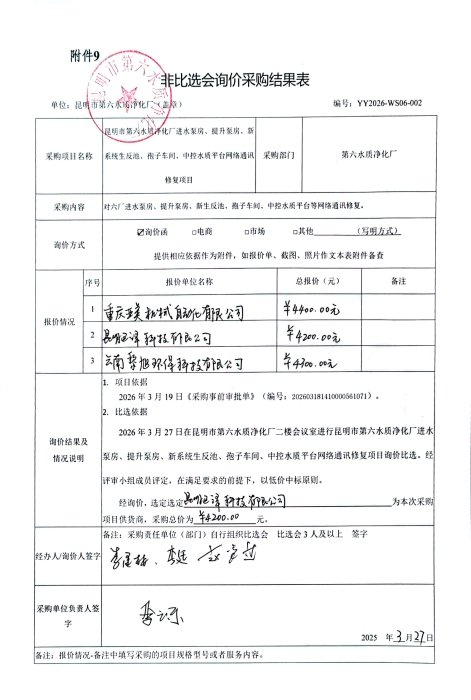 附件9
非比选会询价采购结果表
单位：昆明市第六水质净化厂（盖章）
编号：YY2026-WS06-002
采购项目名称
昆明市第六水质净化厂进水泵房、提升泵房、新
系统生反池、孢子车间、中控水质平台网络通讯
修复项目
采购部门
第六水质净化厂
采购内容
对六厂进水泵房、提升泵房、新生反池，孢子车间、中控水质平台等网络通讯修复。
询价方式
☑询价函 □电商 □市场 □其他 （写明方式）
提供相应依据作为附件，如报价单、截图、照片作文本表附件备查
报价情况
序号 报价单位名称 总报价（元） 备注
1 重庆 美机械自动化有限公司 ¥4400.00元
2 昆明 泽科技有限公司 ¥4200.00元
3 云南 旭环保科技有限公司 ¥4300.00元
询价结果及
情况说明
1. 项目依据
2026年3月19日《采购事前审批单》（编号：202603181410000561071）。
2. 比选依据
2026年3月27日在昆明市第六水质净化厂二楼会议室进行昆明市第六水质净化厂进水
泵房、提升泵房、新系统生反池、孢子车间、中控水质平台网络通讯修复项目询价比选。经
评审小组成员评定，在满足要求的前提下，以低价中标原则。
经询价，选定选定昆明 泽科技有限公司为本次采购
项目供货商，采购总价为 ¥4200.00 元。
经办人/询价人签字
备注：采购责任单位（部门）自行组织比选会 比选会3人及以上 签字
采购单位负责人签
字
2025 年 3 月 27 日
备注：报价情况-备注中填写采购的项目规格型号或者服务内容。